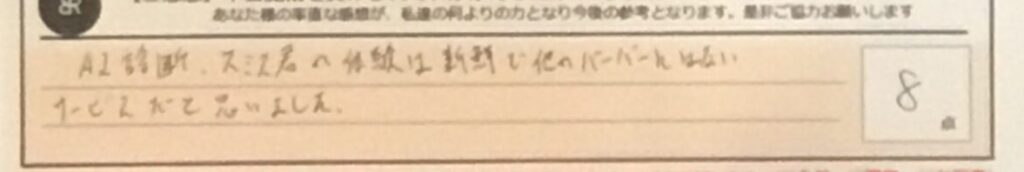 あなた様の率直な感想が、私達の何よりの力となり今後の参考となります。是非ご協力お願いします
AI診断、スミス君の体験は新鮮で他のバーバーにはない
サービスだと思いました。
8
点